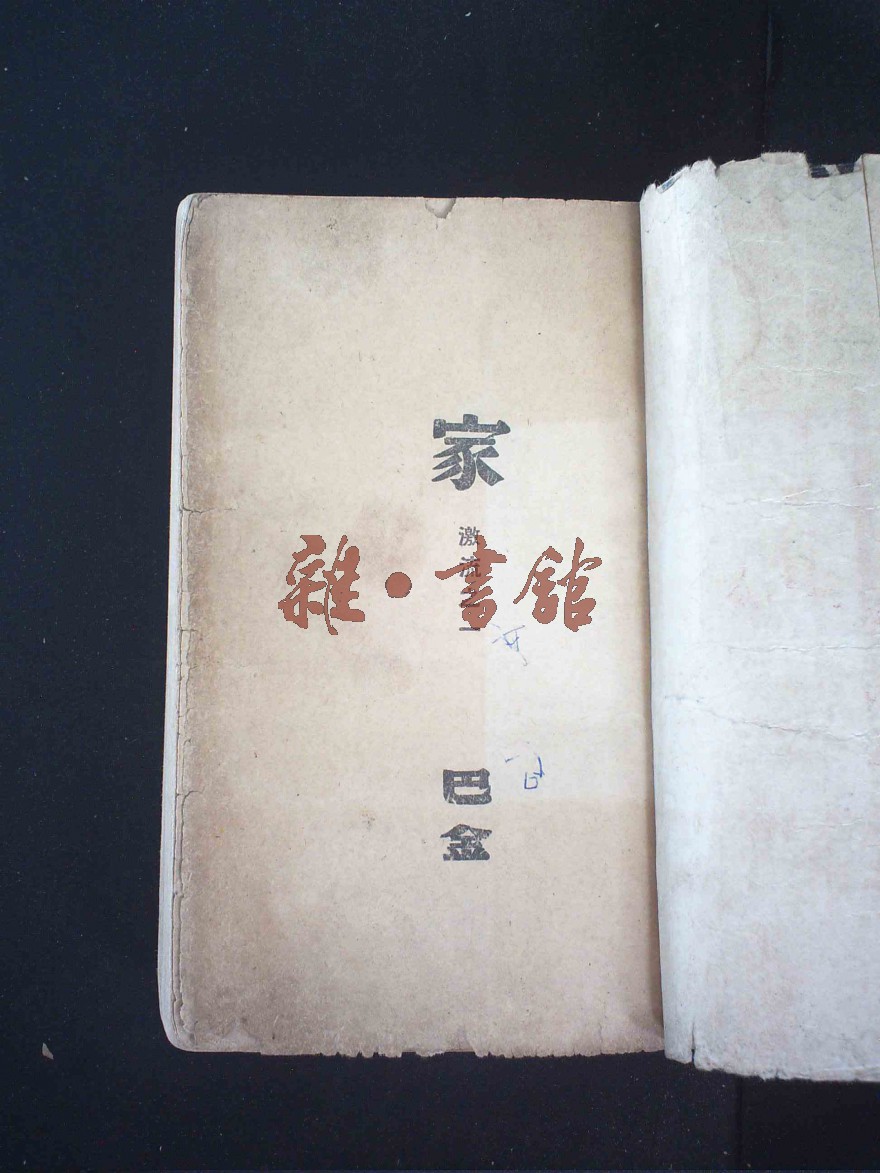 家
激流之一
巴金
雜·書館